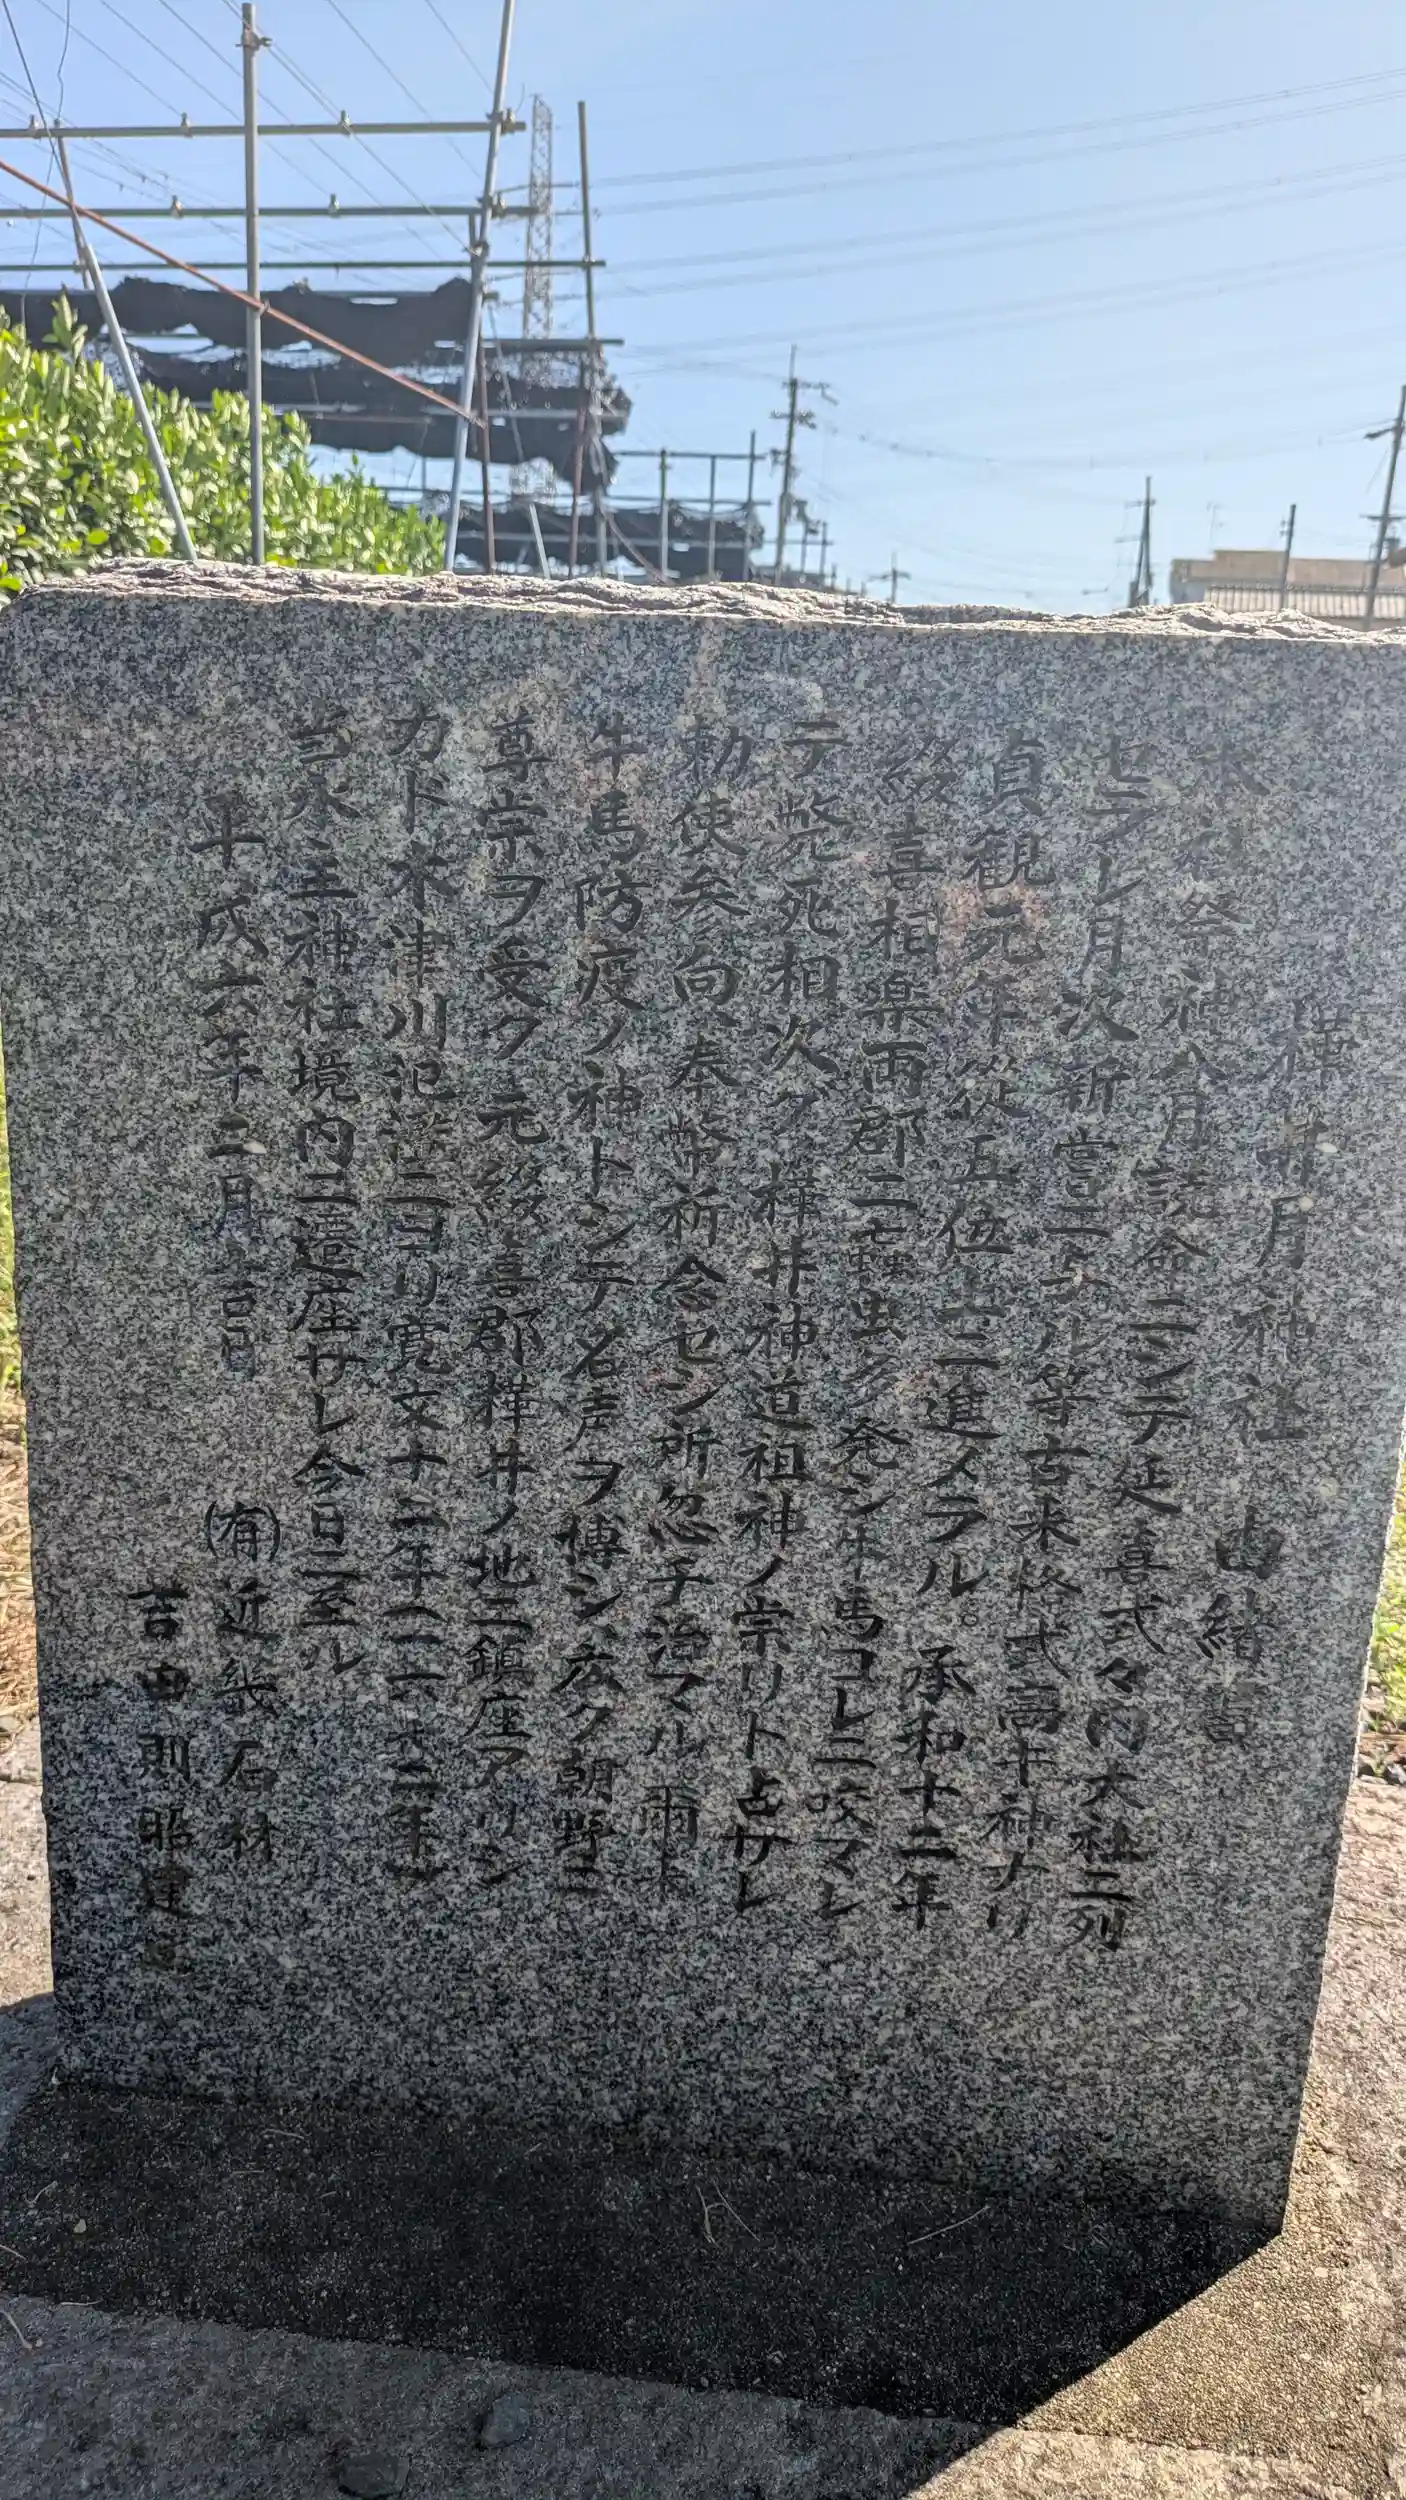 樺井月神社 由緒書
本社祭神ハ月読命ニシテ延喜式々内大社ニ列
セラレ月次新嘗ニ与ル等古来格式高キ神ナリ
貞観元年従五位上ニ進メラル。承和十二年
綴喜相楽両郡ニ虻虫多ク発シ牛馬コレニ咬マレ
テ斃死相次グ樺井神道祖神ノ祟リト占サレ
勅使参向、奉幣祈念セシ所忽チ治マル爾来
牛馬防疫ノ神トシテ名声ヲ博シ広ク朝野ニ
尊崇ヲ受ク元綴喜郡樺井ノ地ニ鎮座アリシ
カド木津川氾濫ニヨリ寛文十二年
当水主神社境内ニ造座サレ今日ニ至ル
平成六年三月吉日
(有)近畿石材
吉田則昭建之